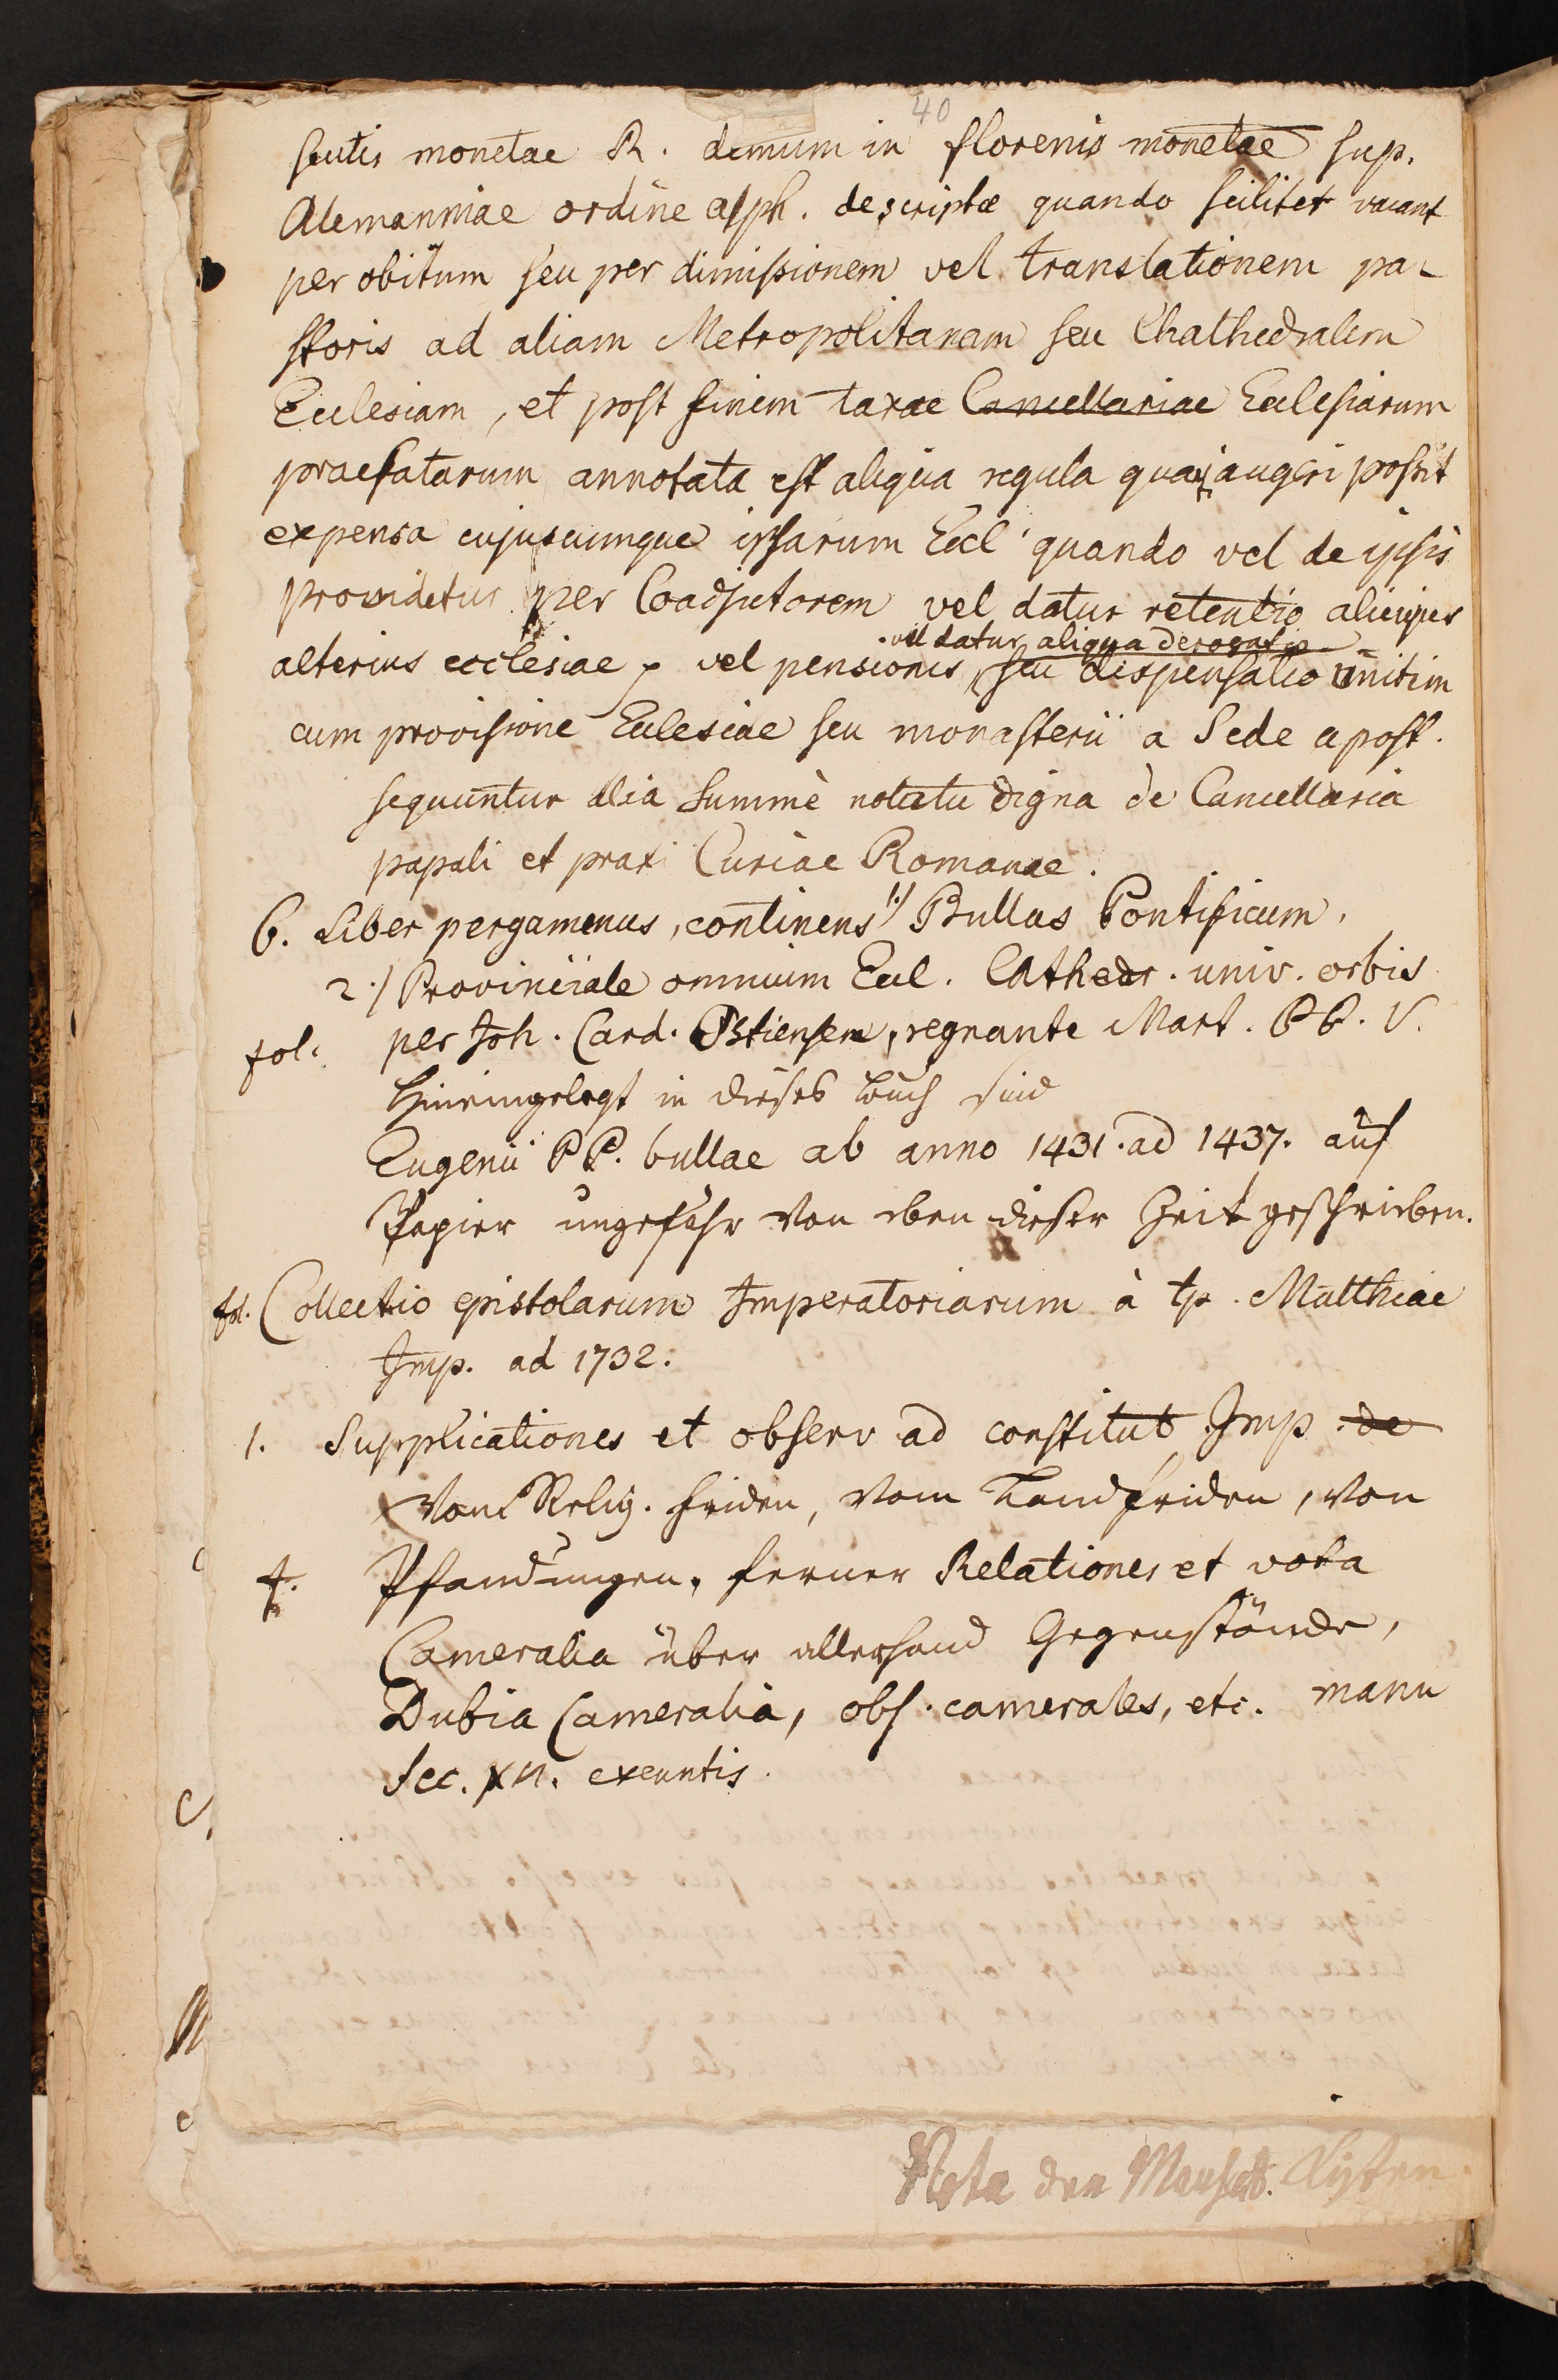 40
scutis monetae R. demum in florenis monetae sup.
Alemanniae ordine alph. descriptae quando scilicet vacant
per obitum seu per dimissionem vel translationem pa-
storis ad aliam Metropolitanam seu Chathedralem
Ecclesiam, et post finem taxae Cancellariae Ecclesiarum
praefatarum annotata est aliqua regula qua augeri possit
expensa cujuscumque ipsarum Eccl quando vel de ipsis
providetur per Coadjutorem vel datur retentio alicujus
vel datur aliqua derogatio
alterius ecclesiae, vel pensionis, seu dispensatio unitim
cum provisione Ecclesiae seu monasterii a Sede apost.
sequuntur alia summè notatu digna de Cancellaria
papali et praxi Curiae Romanae.
6. Liber pergamenus, continens 1.) Bullas Pontificum.
2.) Provinciale omnium Eccl. Cathedr. univ. orbis
fol. per Joh. Card. Ostiensem, regnante Mart. PP. V.
Hineingelegt in dieses Buch sind
Eugenii PP. bullae ab anno 1431. ad 1437. auf
Papier ungefähr von eben dieser Zeit geschrieben.
fol. Collectio epistolarum Imperatoriarum à tp. Matthiae
Imp. ad 1732.
1. Supplicationes et observ ad constitut Imp. de
Vom Relig. friden, vom Landfriden, von
f. Pfandungen, ferner Relationes et vota
Cameralia über allerhand Gegenstände,
Dubia Cameralia, obs. camerales, etc. manu
Sec. XVI. exeuntis.
Nota den Manscpt. Kysten